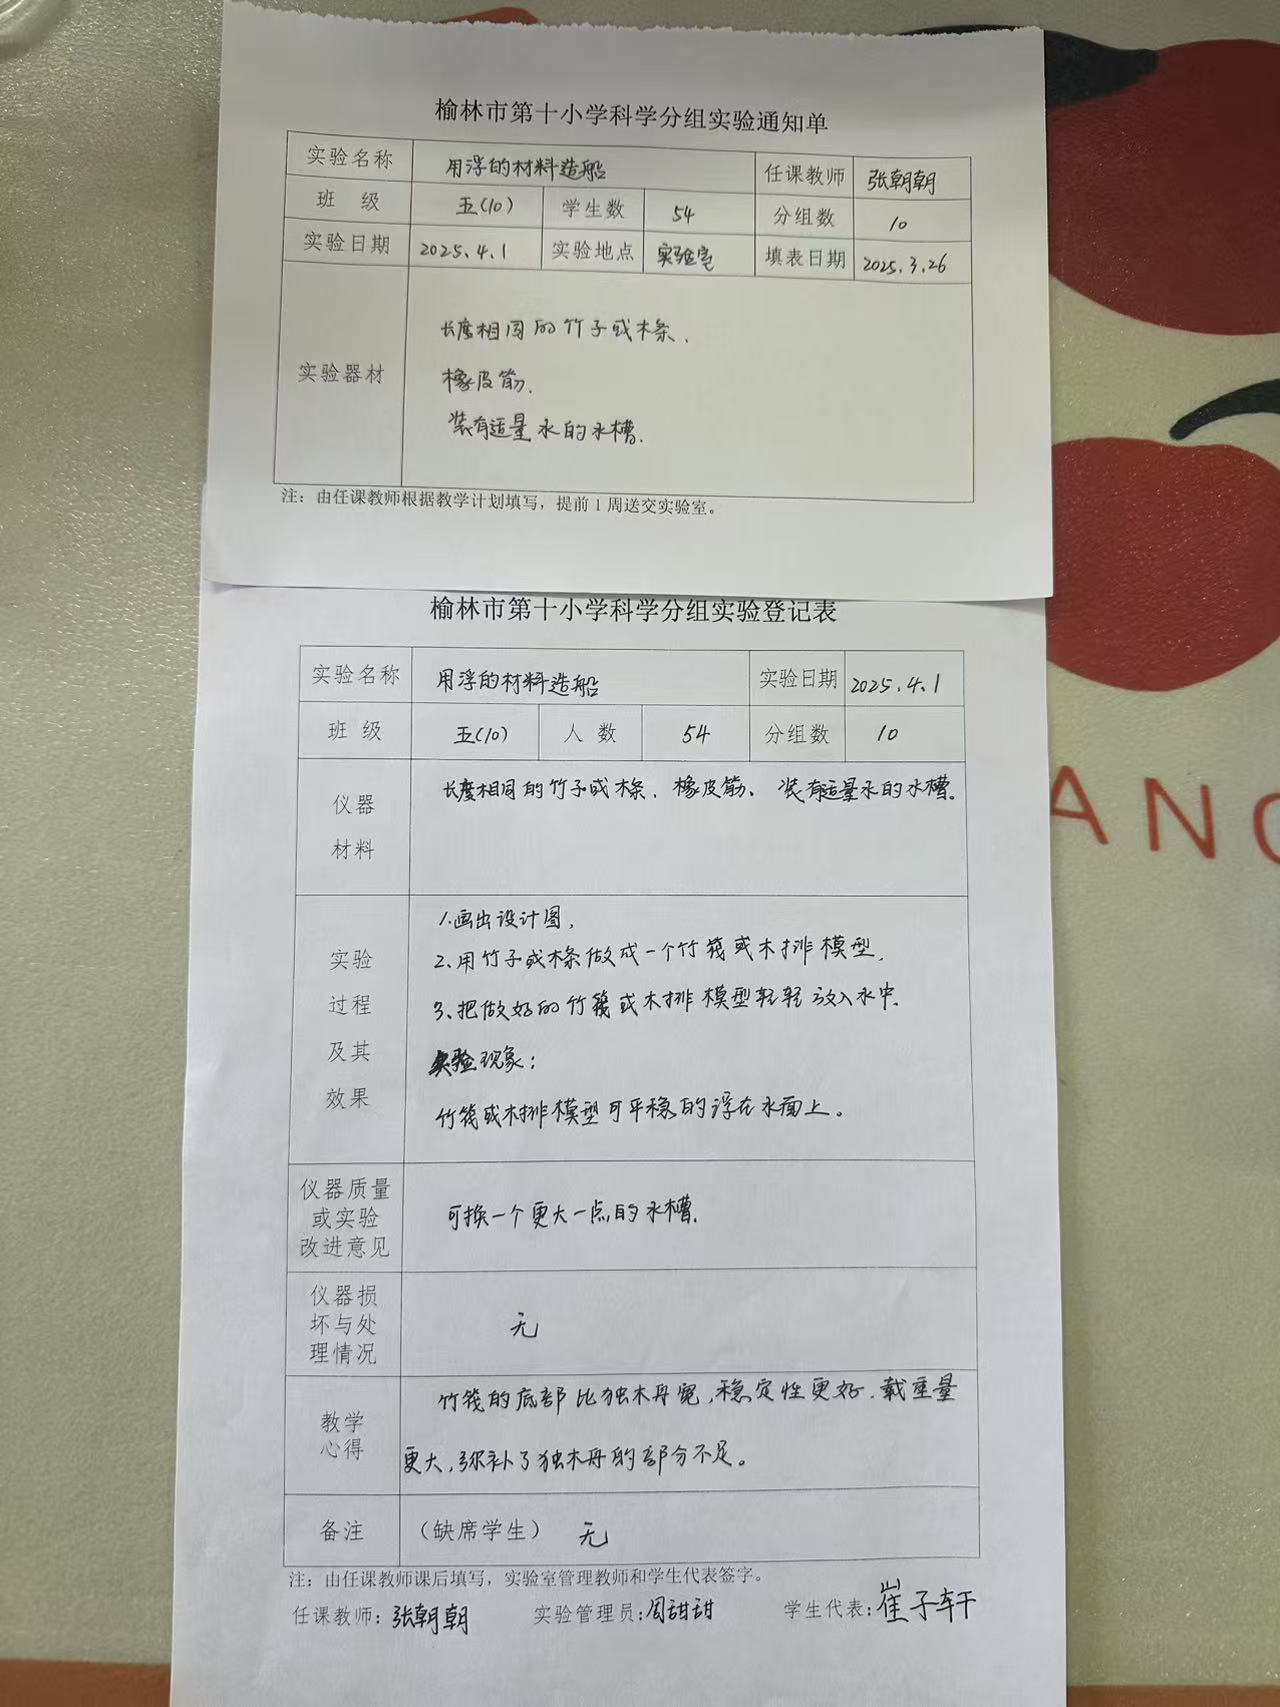 榆林市第十小学科学分组实验通知单
实验名称 用浮的材料造船 任课教师 张朝朝
班 级 五(10) 学生数 54 分组数 10
实验日期 2025.4.1 实验地点 实验室 填表日期 2025.3.26
长度相同的竹子或木条、
实验器材 橡皮筋、
装有适量水的水槽.
注：由任课教师根据教学计划填写，提前1周送交实验室。
榆林市第十小学科学分组实验登记表
实验名称 用浮的材料造船 实验日期 2025.4.1
班 级 五(10) 人 数 54 分组数 10
仪器
材料
长度相同的竹子或木条、橡皮筋、装有适量水的水槽。
实验
过程
及其
效果
1.画出设计图,
2、用竹子或木条做成一个竹筏或木排模型,
3、把做好的竹筏或木排模型轻轻放入水中.
实验现象：
竹筏或木排模型可平稳的浮在水面上。
仪器质量
或实验
改进意见
可换一个更大一点的水槽.
仪器损
坏与处
理情况
无
教学
心得
竹筏的底部比独木舟宽,稳定性更好.载重量
更大,弥补了独木舟的部分不足。
备注 （缺席学生） 无
注：由任课教师课后填写，实验室管理教师和学生代表签字。
任课教师：张朝朝 实验管理员：周甜甜 学生代表：崔子轩
ANG